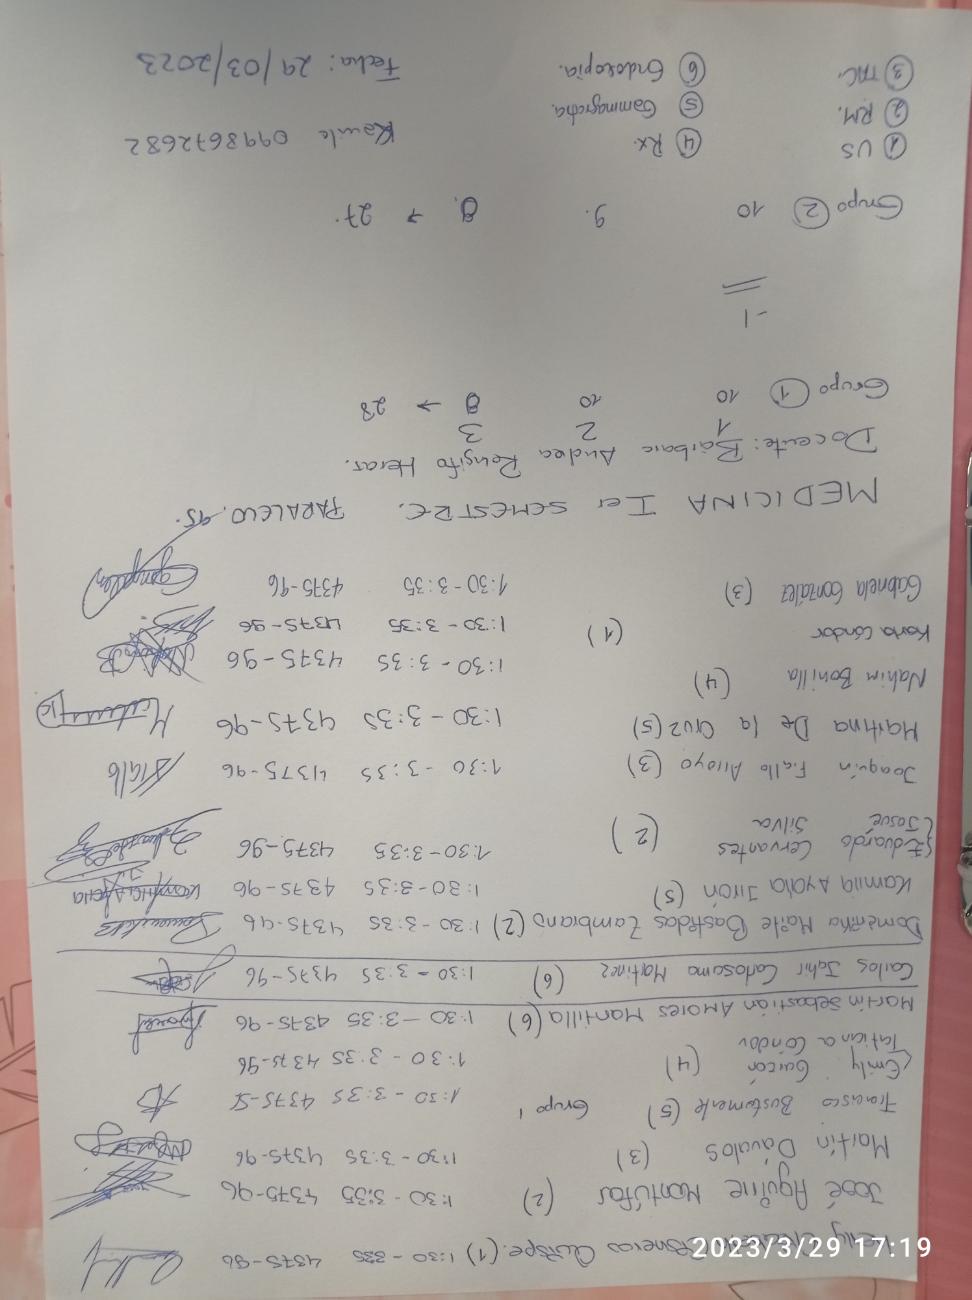 Quispe. (1) 1:30 - 335 4375-96
José Aguirre Montúfar (2) 1:30 - 3:35 4375-96
Martín Dávalos (3) 1:30 - 3:35 4375-96
Francisco Bustamente (5) Grupo 1 1:30 - 3:35 4375-
Emily Garzón (4) 1:30 - 3:35 4375-96
Tatiana Cóndor
Martín Sebastián Amores Mantilla (6) 1:30 - 3:35 4375-96
Carlos Jahir Carlosama Martinez (6) 1:30 - 3:35 4375-96
Doménika Maite Bastidas Zambrano (2) 1:30 - 3:35 4375-96
Kamila Ayala Jirón (5) 1:30 - 3:35 4375-96
Eduardo Cervantes (2) 1:30 - 3:35 4375-96
Josue Silva
Joaquín Fiallo Arroyo (3) 1:30 - 3:35 4375-96
Martina De la Cruz (5) 1:30 - 3:35 4375-96
Nahim Bonilla (4) 1:30 - 3:35 4375-96
Karla Cóndor (1) 1:30 - 3:35 4375-96
Gabriela González (3) 1:30 - 3:35 4375-96
MEDICINA Ier SEMESTRE. PARALELO. 95.
Docente: Bárbara Andrea Rengifo Heras.
1 2 3
Grupo 1 10 10 8 → 28
-1
Grupo 2 10 9. 8. → 27.
1 US 4 Rx.
2 RM. 5 Gammagrafia.
3 TAC. 6 Endoscopia.
0998672682
Fecha: 29/03/2023
2023/3/29 17:19